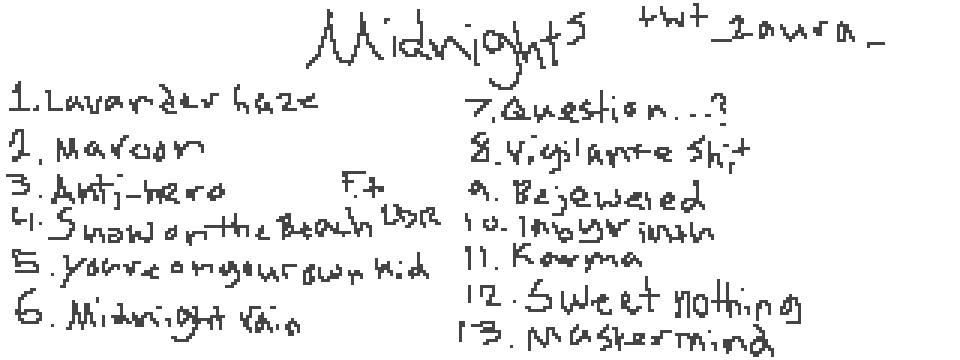 Midnights
twt_laura_
1. Lavander haze
2. Maroon
3. Anti-hero
4. Snow on the Beach Ft LDR
5. You're on your own kid
6. Midnight rain
7. Question...?
8. Vigilante Shit
9. Bejeweled
10.
11. Karma
12. Sweet nothing
13. Mastermind